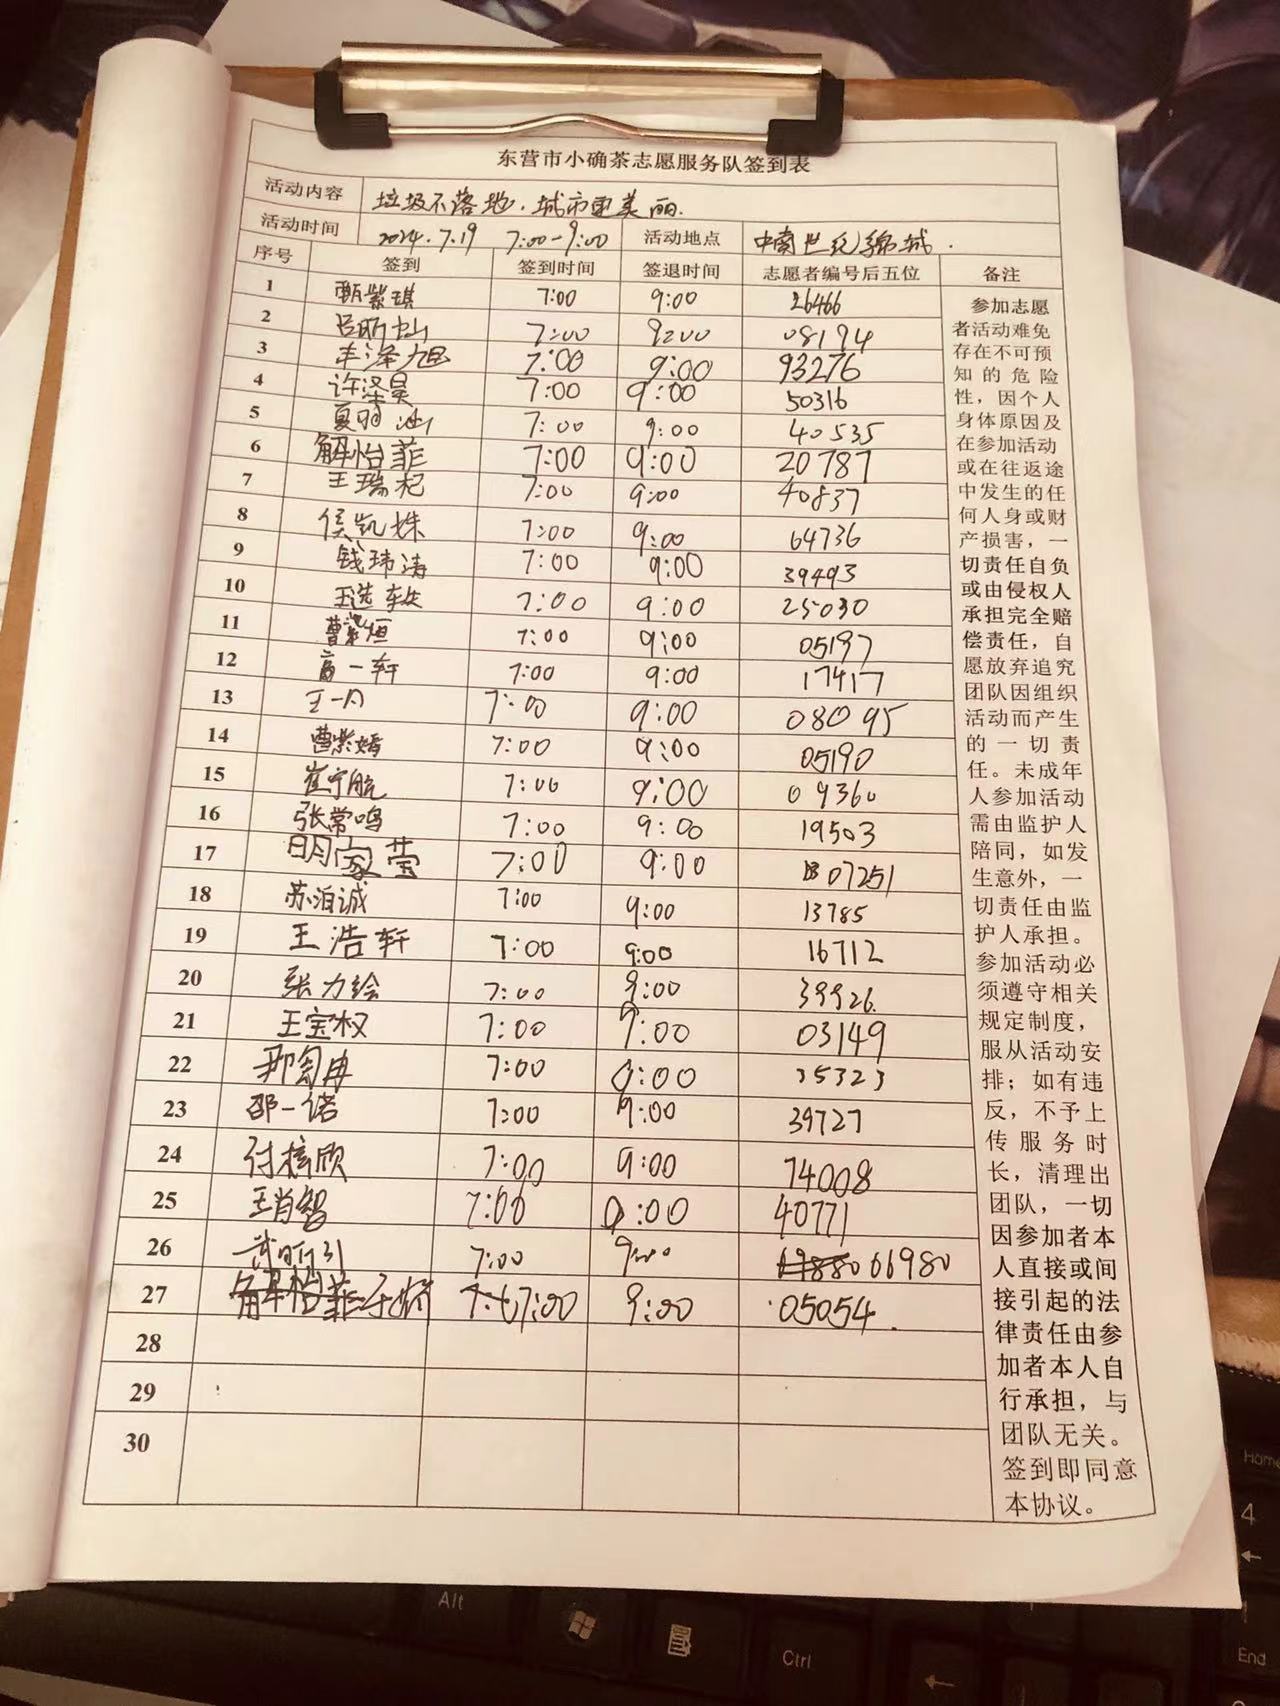 东营市小确茶志愿服务队签到表
活动内容 垃圾不落地.城市更美丽.
活动时间 2024.7.19 7:00-9:00 活动地点 中南世纪锦城.
序号 签到 签到时间 签退时间 志愿者编号后五位 备注
1 甄紫琪 7:00 9:00 26466
2 7:00 9:00 08194
3 丰泽旭 7:00 9:00 93276
4 许泽昊 7:00 9:00 50316
5 7:00 9:00 40535
6 解怡菲 7:00 9:00 20787
7 王瑞杞 7:00 9:00 40837
8 侯凯姝 7:00 9:00 64736
9 钱玮涛 7:00 9:00 39493
10 7:00 9:00 25030
11 曹紫恒 7:00 9:00 05197
12 一轩 7:00 9:00 17417
13 王一 7:00 9:00 08095
14 曹紫嫣 7:00 9:00 05190
15 崔宁航 7:00 9:00 09360
16 张常鸣 7:00 9:00 19503
17 明家莹 7:00 9:00 07251
18 苏泊诚 7:00 9:00 13785
19 王浩轩 7:00 9:00 16712
20 张力绘 7:00 9:00 39926.
21 王宝权 7:00 9:00 03149
22 7:00 9:00 35323
23 邵一诺 7:00 9:00 39727
24 付梓欣 7:00 9:00 74008
25 王肖智 7:00 9:00 40771
26 7:00 9:00 06980
27 解怡菲 7:00 9:00 05054.
28
29
30
参加志愿
者活动难免
存在不可预
知的危险
性，因个人
身体原因及
在参加活动
或在往返途
中发生的任
何人身或财
产损害，一
切责任自负
或由侵权人
承担完全赔
偿责任，自
愿放弃追究
团队因组织
活动而产生
的一切责
任。未成年
人参加活动
需由监护人
陪同，如发
生意外，一
切责任由监
护人承担。
参加活动必
须遵守相关
规定制度，
服从活动安
排；如有违
反，不予上
传服务时
长，清理出
团队，一切
因参加者本
人直接或间
接引起的法
律责任由参
加者本人自
行承担，与
团队无关。
签到即同意
本协议。
Alt
Ctrl
Home
4
1
End